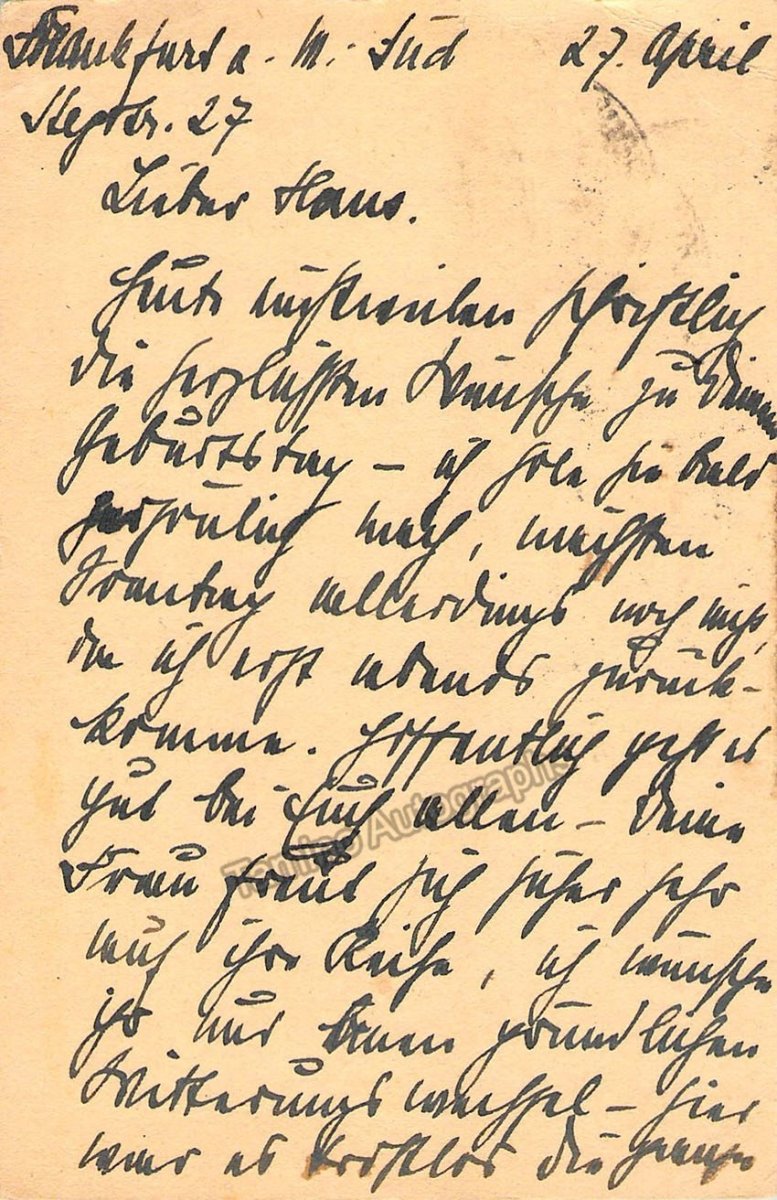 Frankfurt a. M. Süd 27. April
Stegstr. 27
Lieber Hans.
Heute einstweilen schriftlich
die herzlichsten Wünsche zu Deinem
Geburtstag – ich hole sie bald
persönlich nach, nächsten
Sonntag allerdings noch nicht,
da ich erst abends zurück-
komme. Hoffentlich geht es
gut bei Euch allen – Deine
Frau freut sich sicher sehr
auf ihre Reise, ich wünsche
ihr nur einen gründlichen
Witterungswechsel – hier
war es trostlos die ganze
Tamino Autographs